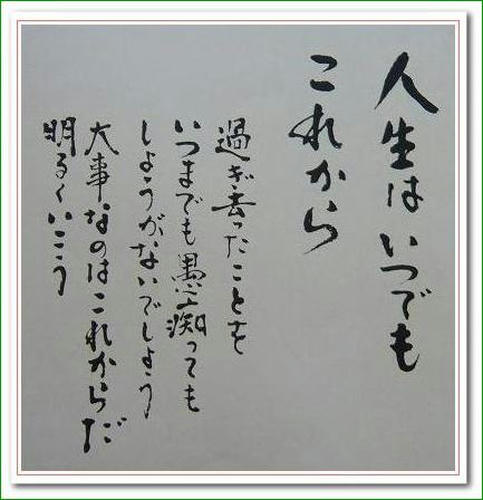 人生はいつでも
これから
過ぎ去ったことを
いつまでも愚痴っても
しようがないでしょう
大事なのはこれからだ
明るくいこう